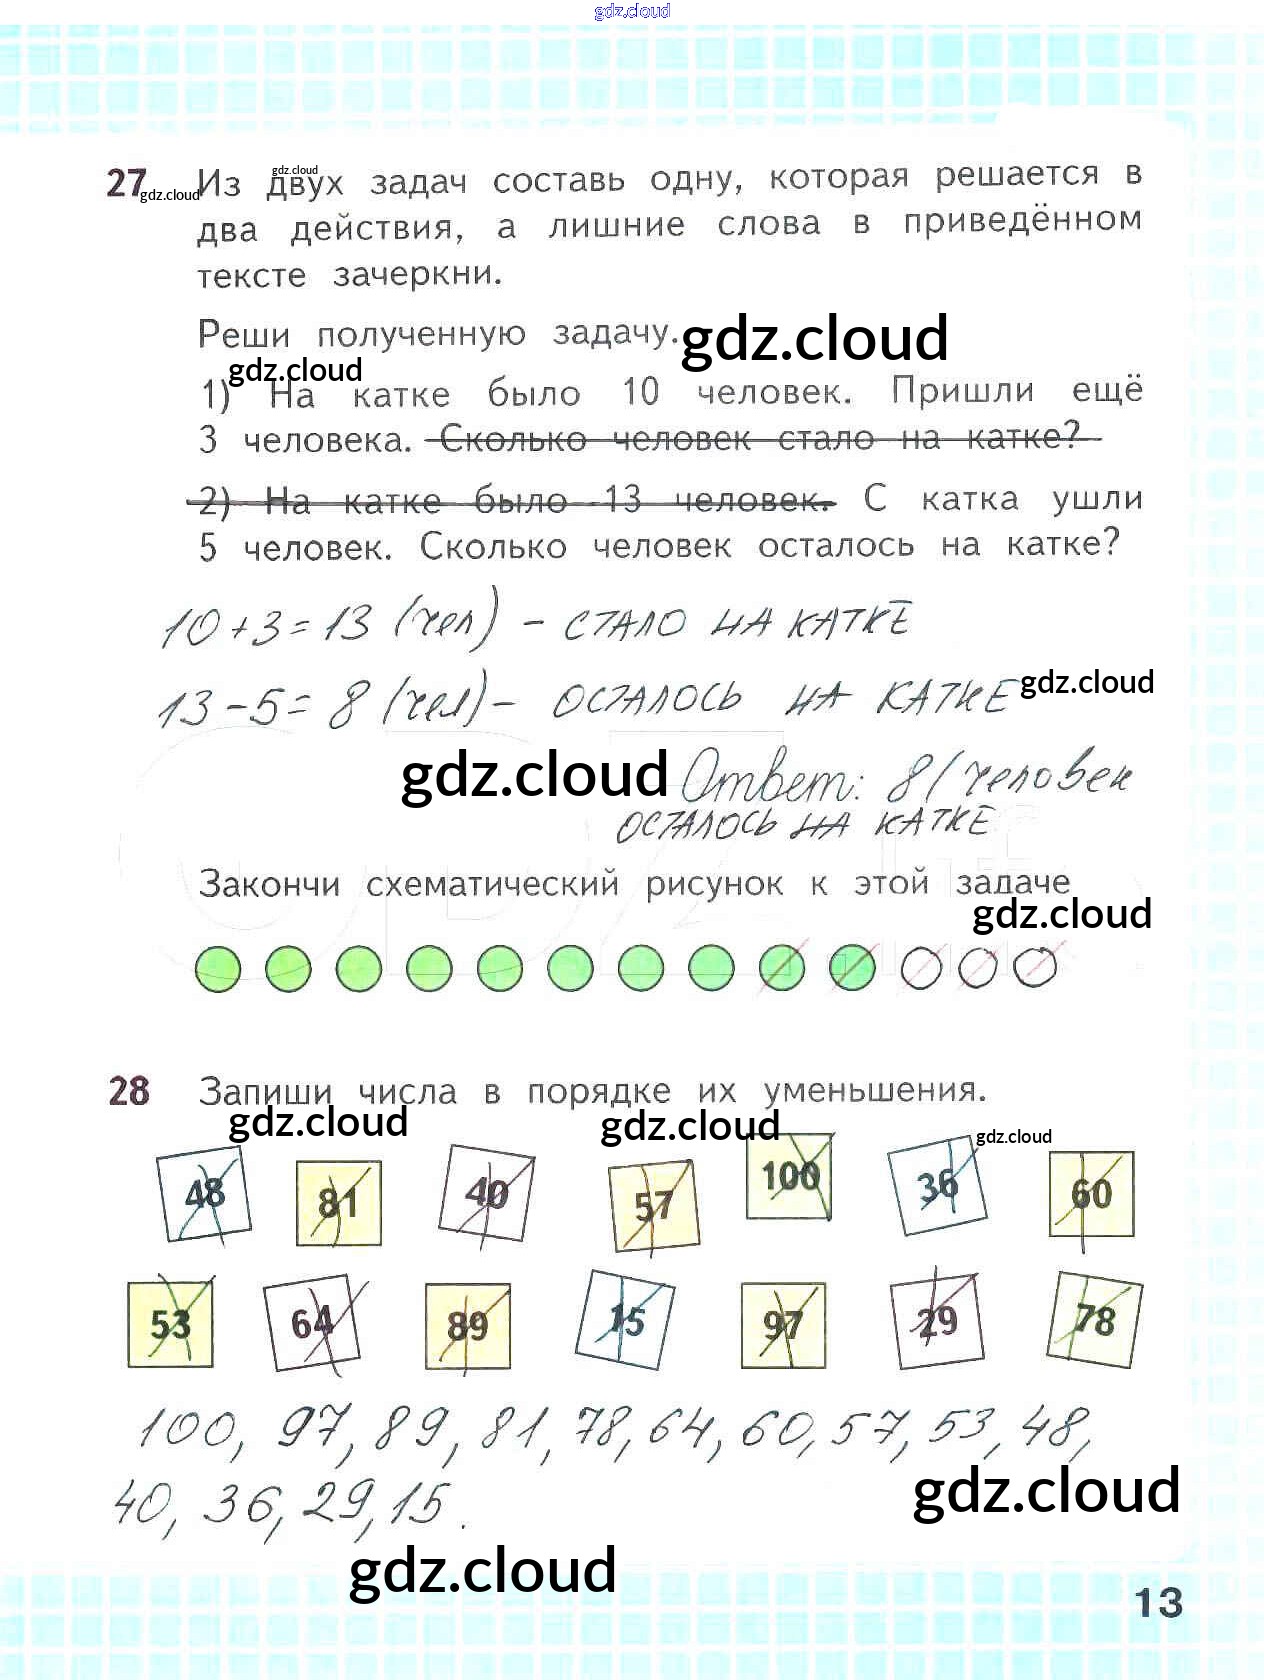 gdz.cloud
27 Из двух задач составь одну, которая решается в
gdz.cloud
gdz.cloud
два действия, а лишние слова в приведённом
тексте зачеркни.
Реши полученную задачу.
gdz.cloud
gdz.cloud
1) На катке было 10 человек. Пришли ещё
3 человека. Сколько человек стало на катке?
2) На катке было 13 человек. С катка ушли
5 человек. Сколько человек осталось на катке?
10+3=13 (чел) - СТАЛО НА КАТКЕ
13-5=8 (чел)- ОСТАЛОСЬ НА КАТКЕ
gdz.cloud
gdz.cloud
Ответ: 8 (человек
ОСТАЛОСЬ НА КАТКЕ
Закончи схематический рисунок к этой задаче
gdz.cloud
28 Запиши числа в порядке их уменьшения.
gdz.cloud
gdz.cloud
gdz.cloud
48 81 40 57 100 36 60
53 64 89 15 97 29 78
100, 97, 89, 81, 78, 64, 60, 57, 53, 48,
40, 36, 29, 15.
gdz.cloud
gdz.cloud
13